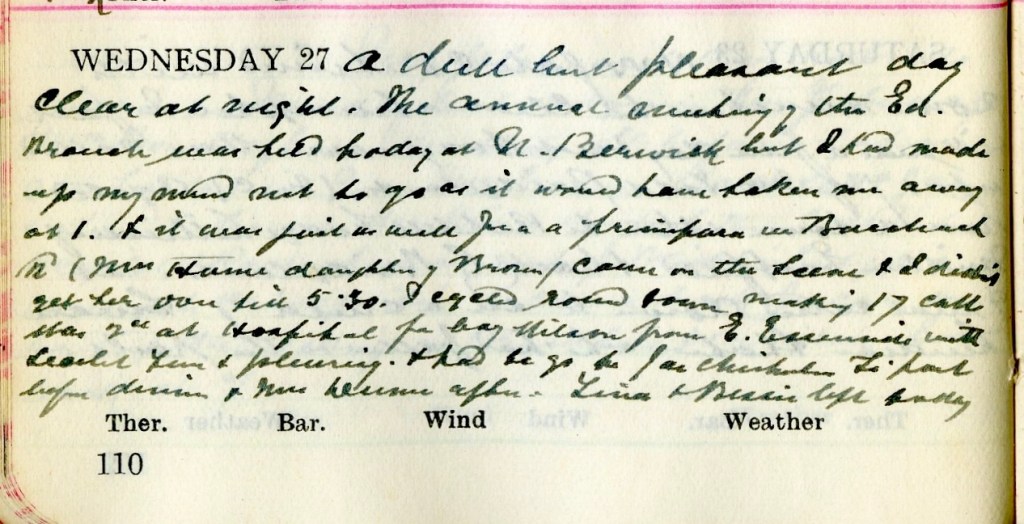 WEDNESDAY 27 A dull but pleasant day
clear at night. The annual meeting of the Ed.
Branch was held today at N. Berwick but I had made
up my mind not to go as it would have taken me away
at 1. & it was just as well for a primipara in
Rd (Mrs Hume daughter of Brown) came on the scene & I didn't
get her over till 5.30. I cycled round town making 17 calls
was 2nd at Hospital for boy Wilson from E. with
Scarlet Fever & pleurisy. & had to go to
before dinner & Mrs after. Lina & Bessie left today
Ther. Bar. Wind Weather
110